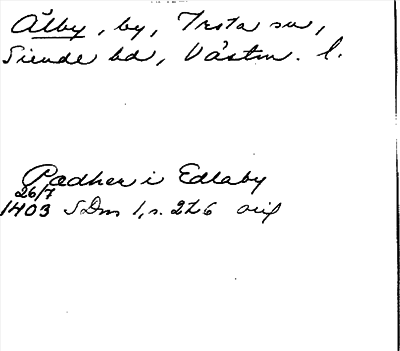 Älby, by, Tortuna sn,
Siende hd, Västm. l.
Pædher i Edlaby
26/7
1403 SDns 1, s. 226 orig